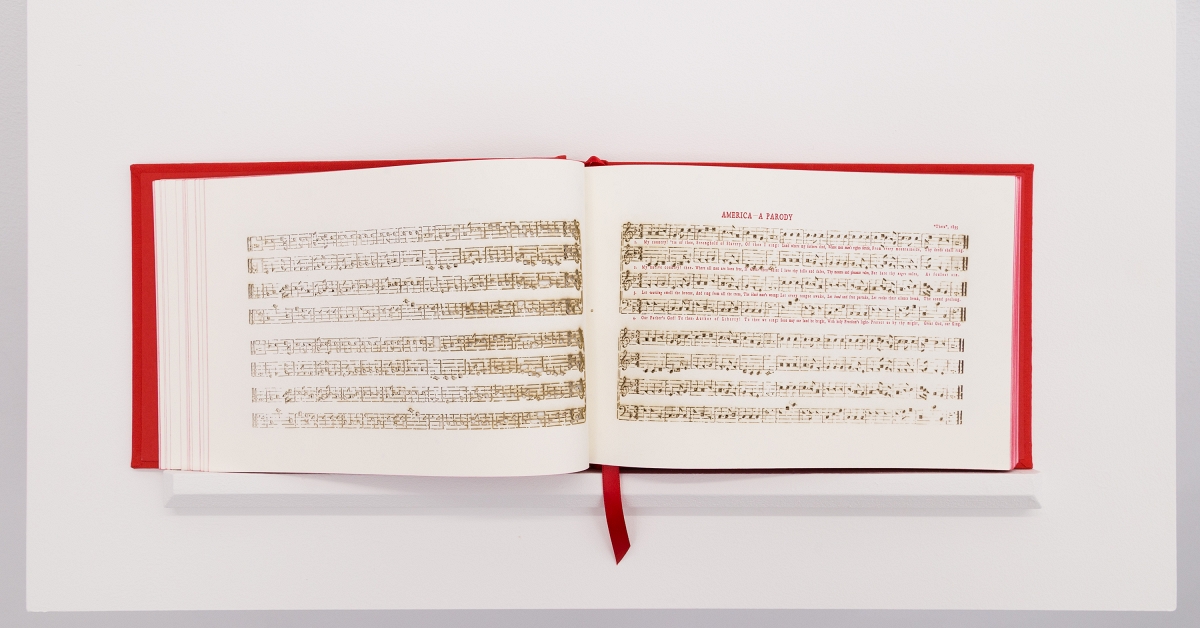 AMERICA—A PARODY
"Theta", 1839
1. My country! 'tis of thee, Stronghold of Slavery, Of thee I sing: Land where my fathers died, Where men man's rights deride, From every mountainside, Thy deeds shall ring.
2. My native country! thee, Where all men are born free, if white their skin: I love thy hills and dales, Thy mounts and pleasant vales, But hate thy negro sales,
3. Let wailing swell the breeze, And ring from all the trees, The black man's wrong; Let every tongue awake, Let bond and free partake, Let rocks their silence break, The sound prolong.
4. Our Father's God! To thee, Author of Liberty! To thee we sing; Soon may our land be bright, With holy Freedom's light, Protect us by thy might, Great God, our King.